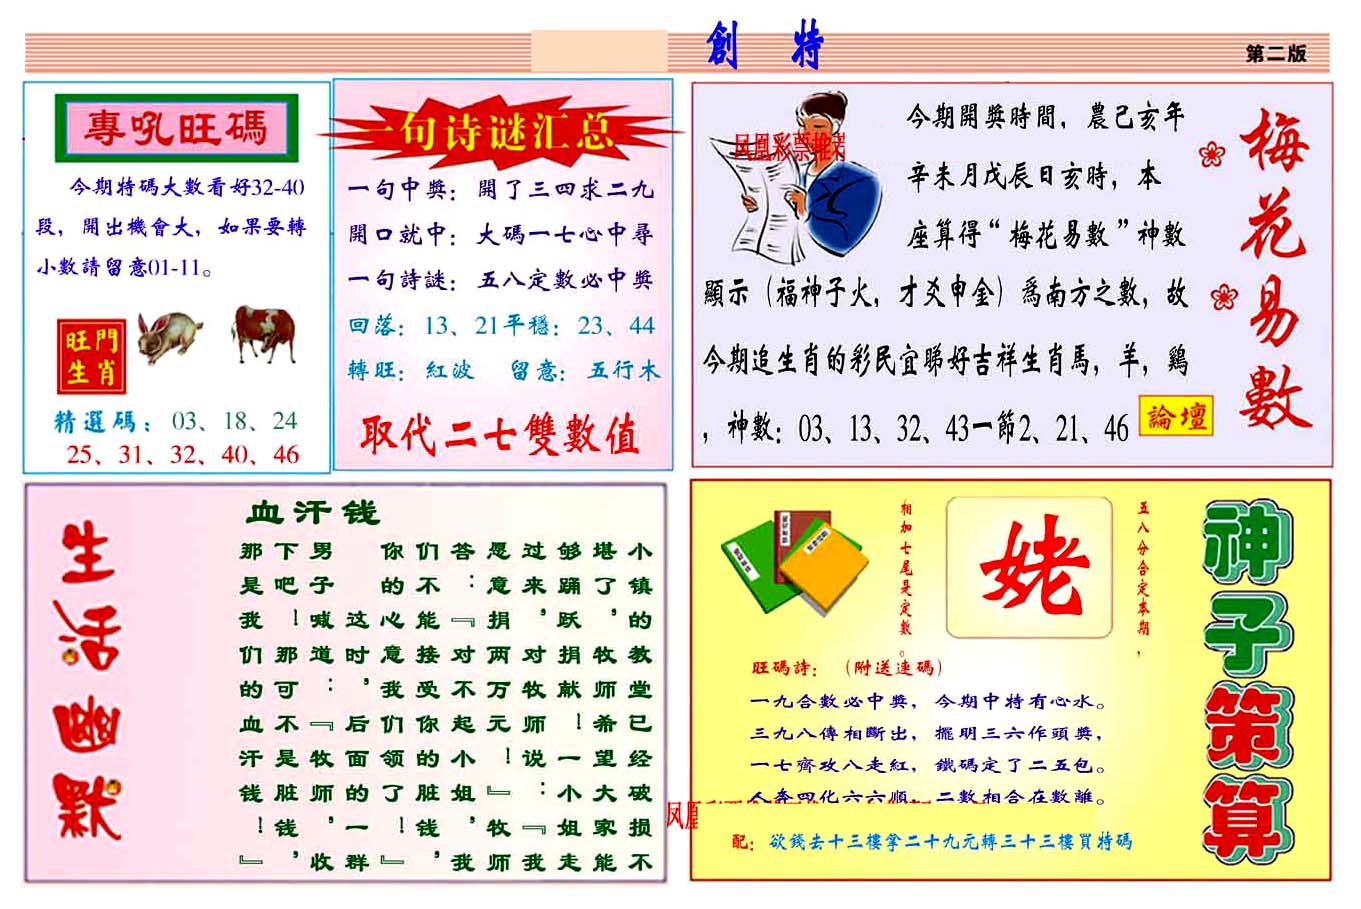 創 特
第二版
專吼旺碼
今期特碼大數看好32-40
段，開出機會大，如果要轉
小數請留意01-11。
旺門
生肖
精選碼：03、18、24
25、31、32、40、46
一句诗谜汇总
一句中獎：開了三四求二九
開口就中：大碼一七心中尋
一句詩謎：五八定數必中獎
回落：13、21平穩：23、44
轉旺：紅波 留意：五行木
取代二七雙數值
今期開獎時間，農己亥年
辛未月戊辰日亥時，本
座算得“梅花易數”神數
顯示（福神子火，才爻申金）爲南方之數，故
今期追生肖的彩民宜睇好吉祥生肖馬，羊，鷄
，神數：03、13、32、43一節2、21、46
論壇
梅花易數
生活幽默
血汗钱
小镇的教堂已经破损不
堪了，牧师希望大家能
够踊跃捐献！一小姐走
过来，对牧师说：『我
愿意捐两万元！』牧师
答：『对不起小姐，我
们不能接受你的脏钱，
你的心意我们领了！』
这时，后面的一群
男子喊道：『牧师，收
下吧！那可不是脏钱，
那是我们的血汗钱！』
神子策算
五八分合定本期，
姥
相加七尾是定數。
旺碼詩：（附送連碼）
一九合數必中獎，今期中特有心水。
三九八傳相斷出，擺明三六作頭獎，
一七齊攻八走紅，鐵碼定了二五包。
二數相合在數離。
配：欲錢去十三樓拿二十九元轉三十三樓買特碼